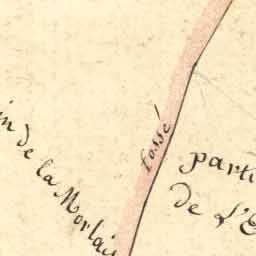 fossé
in de la Morlai
parti
de l'E